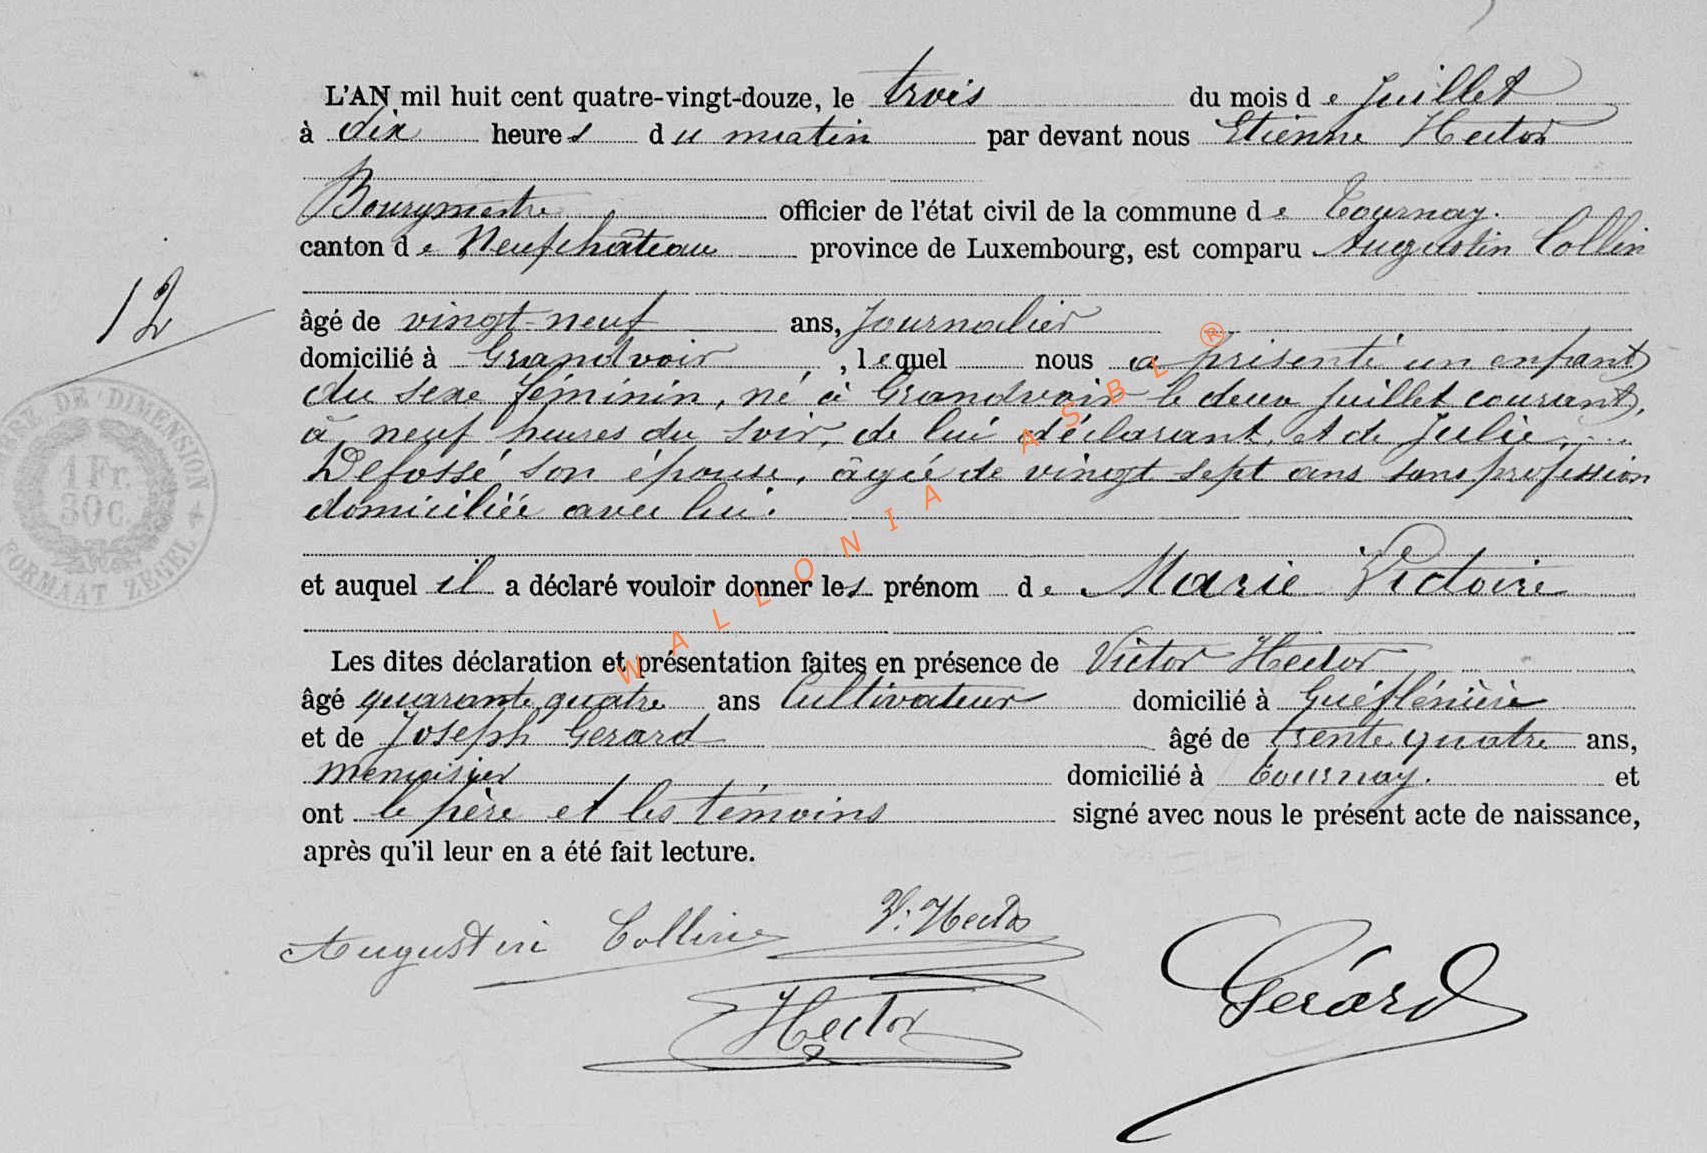 L'AN mil huit cent quatre-vingt-douze, le trois du mois de Juillet
à dix heures du matin par devant nous Etienne Hector
Bourgmestre officier de l'état civil de la commune de Tournay.
canton de Neufchâteau province de Luxembourg, est comparu Augustin Collin
12
âgé de vingt-neuf ans, Journalier
domicilié à Grandvoir, lequel nous a présenté un enfant
du sexe féminin, né à Grandvoir le deux Juillet courant,
à neuf heures du soir, de lui déclarant, et de Julie
Defossé son épouse, âgée de vingt sept ans sans profession
domiciliée avec lui.
et auquel il a déclaré vouloir donner les prénom de Marie Victoire
Les dites déclaration et présentation faites en présence de Victor Hector
âgé quarante quatre ans Cultivateur domicilié à
et de Joseph Gerard âgé de trente quatre ans,
menuisier domicilié à Tournay. et
ont le père et les témoins signé avec nous le présent acte de naissance,
après qu'il leur en a été fait lecture.
Augustin Collin V. Hector
Hector Gérard
DE DIMENSION
1 Fr.
30 c.
FORMAAT ZEGEL
WALLONIA ASBL ®